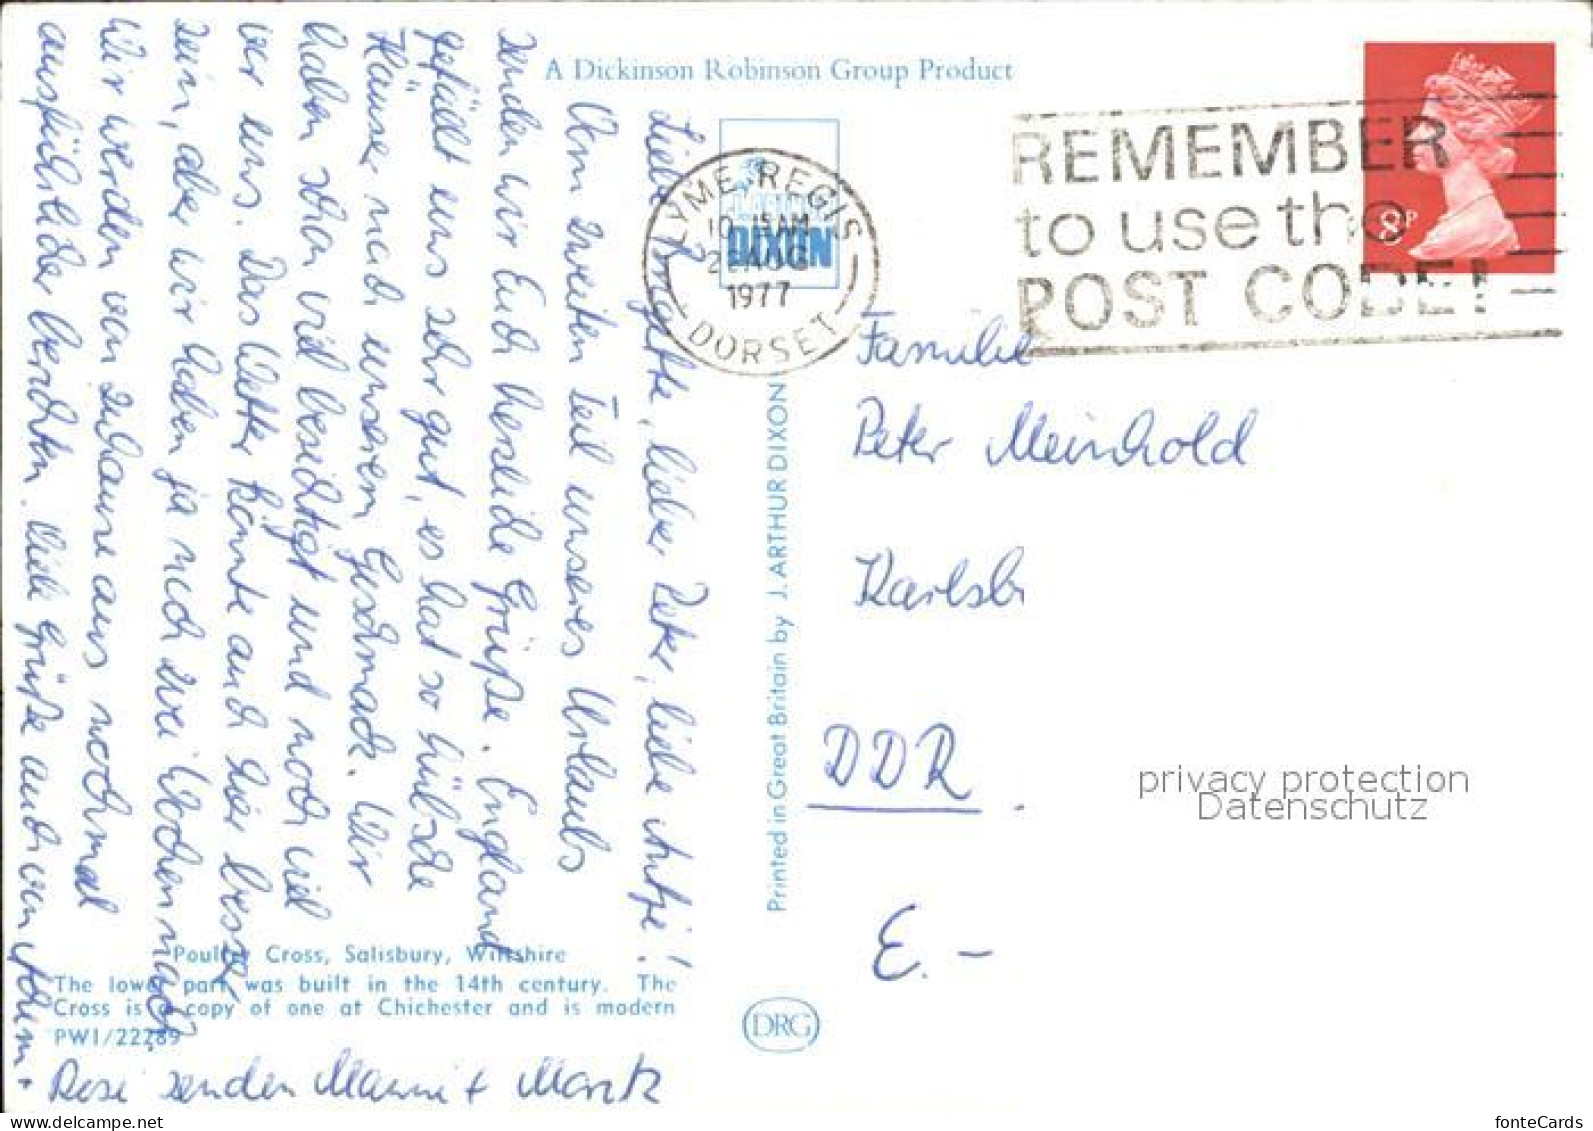 A Dickinson Robinson Group Product
Liebe Annegatte, lieber Peter, liebe Antje!
Vom zweiten Teil unseres Urlaubs
senden wir Euch herzliche Grüße. England
gefällt uns sehr gut, es hat so hübsche
Häuser nach unserem Geschmack. Wir
haben schon viel besichtigt und noch viel
vor uns. Das Wetter könnte auch hier besser
sein, aber wir haben ja noch zwei Wochen
Wir werden von zuhause aus nochmal
ausführlicher berichten. Viele Grüße auch von
Rosi senden Manni + Moritz
DIXON
LYME REGIS
10-15AM
AUG
1977
DORSET
REMEMBER
to use the
POST CODE!
8P
Familie
Peter Meinhold
Karlsb
DDR
E. –
Printed in Great Britain by J. ARTHUR DIXON
Poultry Cross, Salisbury, Wiltshire
The lower part was built in the 14th century. The
Cross is a copy of one at Chichester and is modern
PWI/22289
DRG
privacy protection
Datenschutz
fonteCards
www.delcampe.net